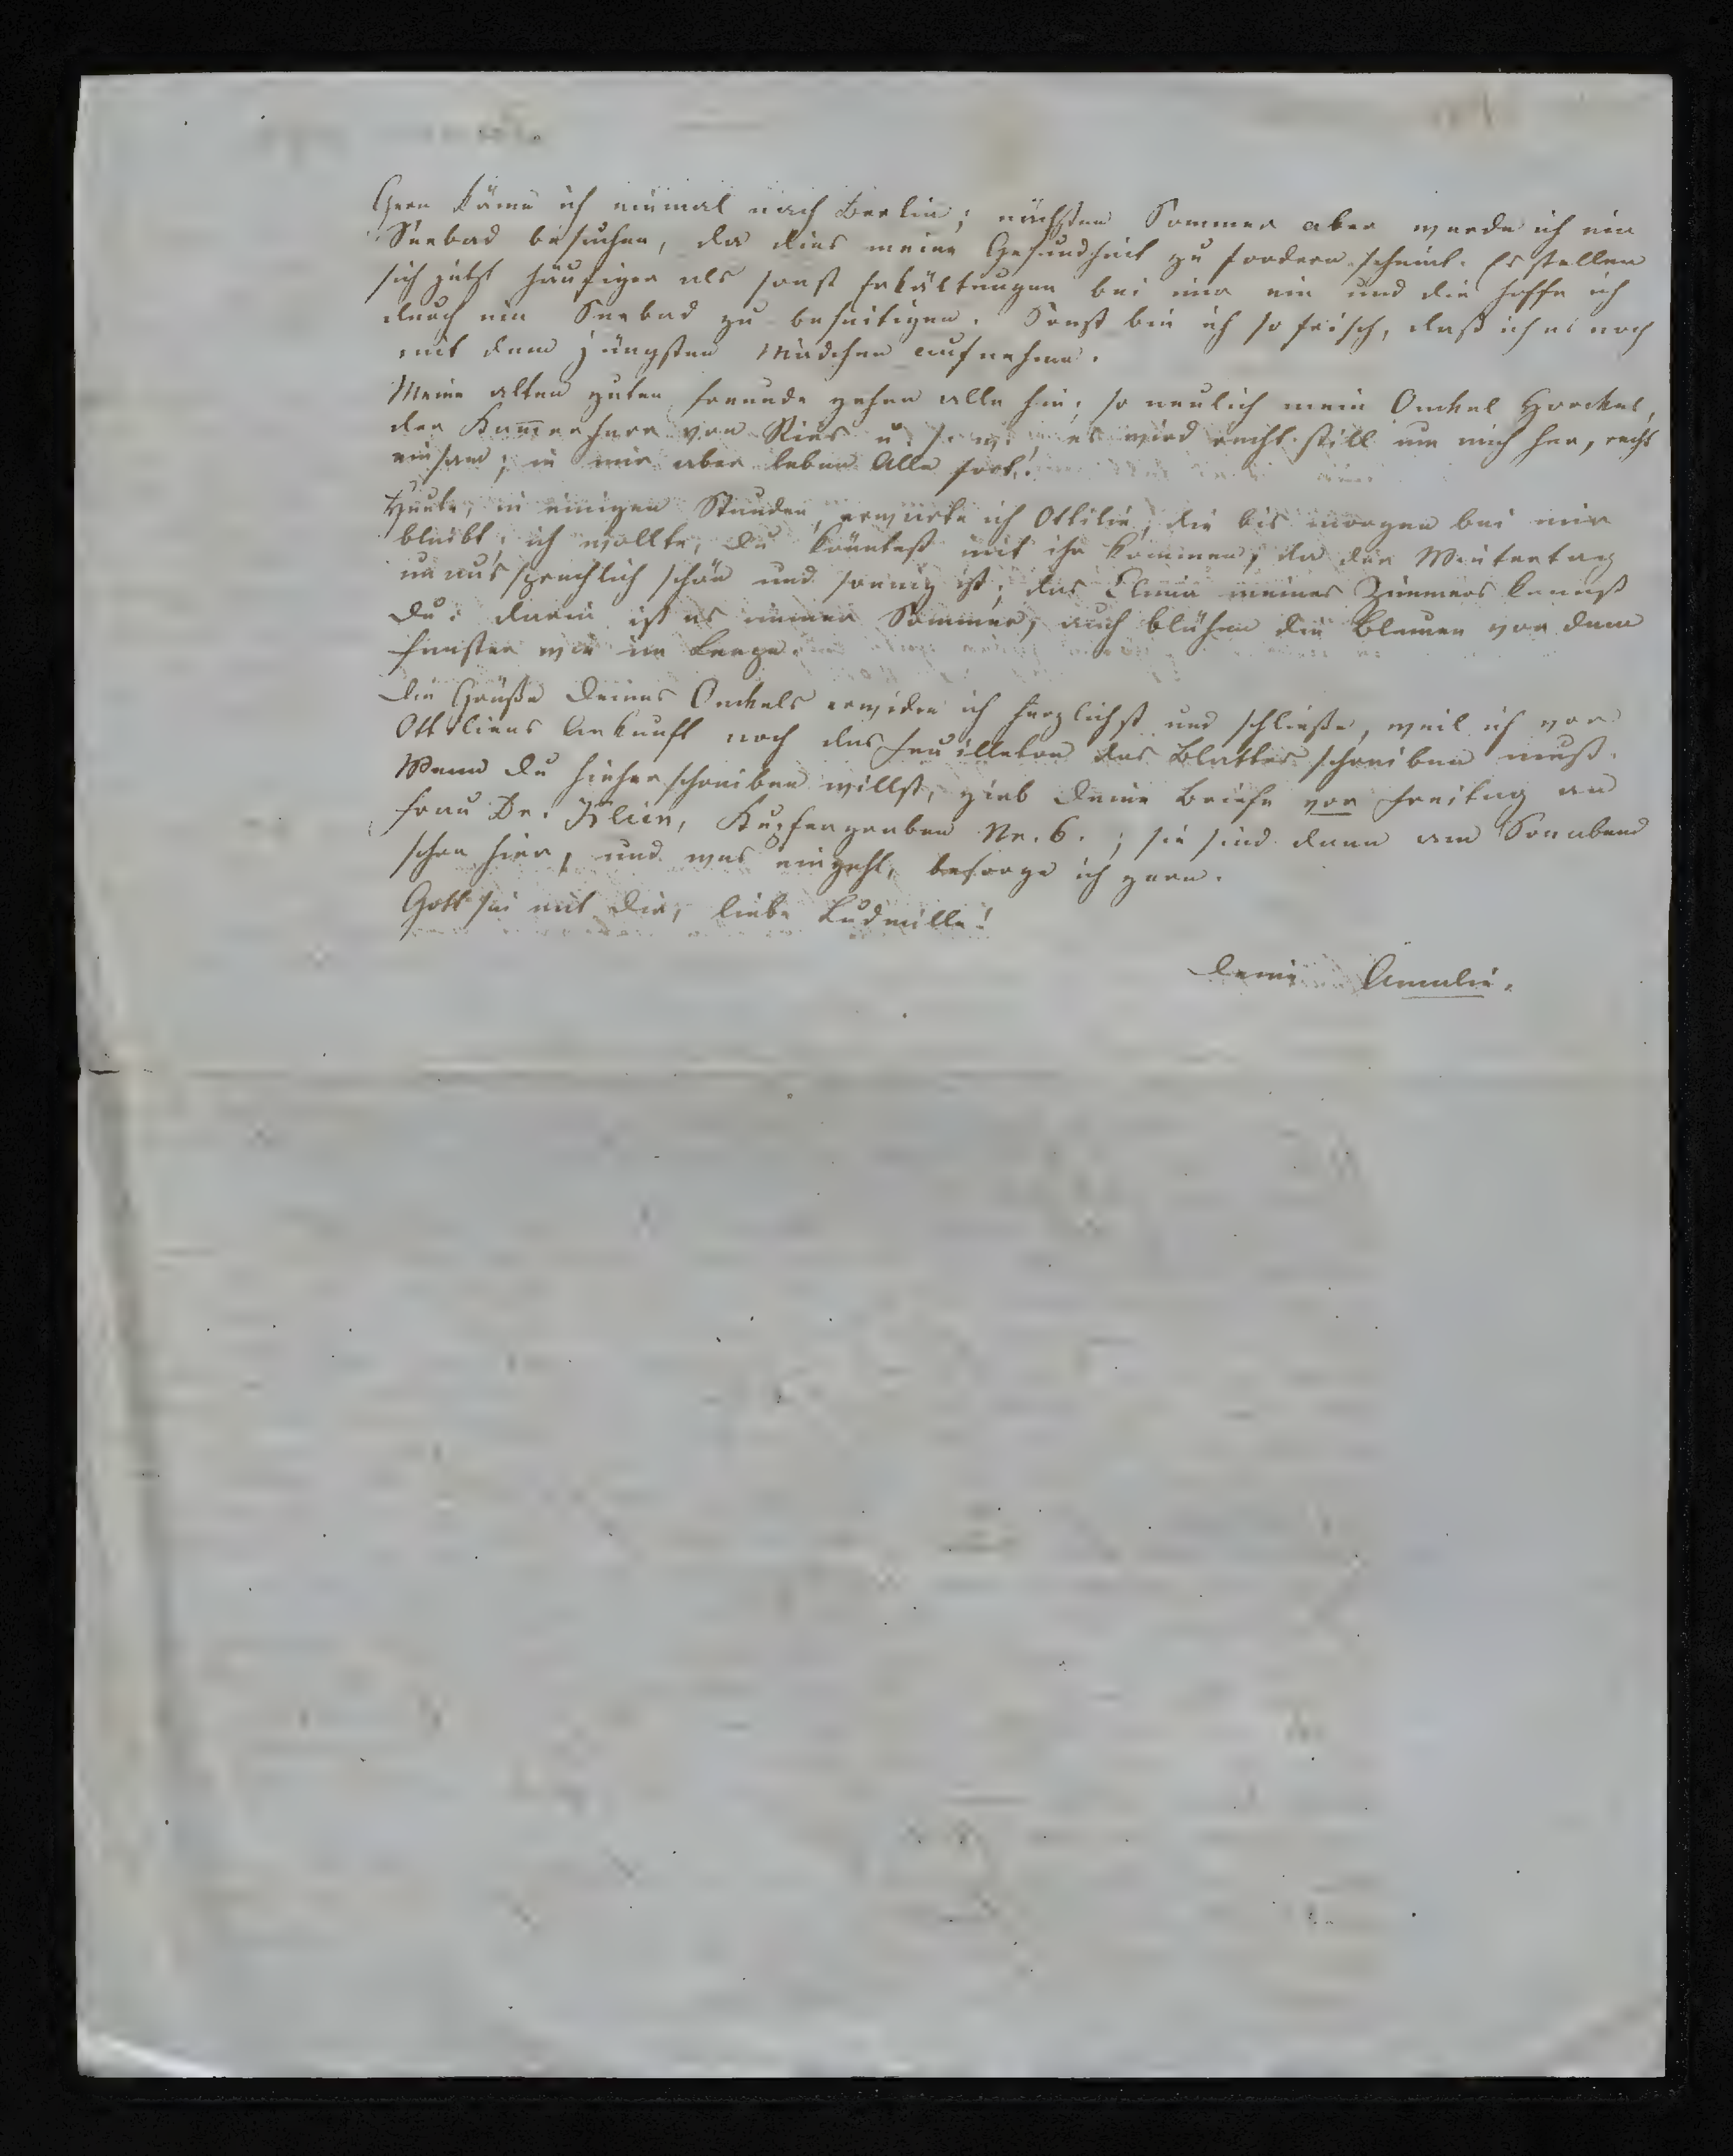 Gern käme ich einmal nach Berlin; nächsten Sommer aber werde ich ein
Seebad besuchen, da dies meine Gesundheit zu fordern scheint. Es stellen
sich jetzt häufiger als sonst Erkältungen bei mir ein und die hoffe ich
durch ein Seebad zu beseitigen. Sonst bin ich so frisch, daß ich es noch
mit dem jüngsten Mädchen aufnehme.
Meine alten guten Freunde gehen alle hin; so neulich mein Onckel
der Kam̅erherr von u. s. w. es wird recht still um mich her, recht
einsam; in mir aber leben Alle fort!
Heute, in einigen Stunden, erwarte ich Ottilie, die bis morgen bei mir
bleibt; ich wollte, Du könntest mit ihr kommen, da der Wintertag
unaussprechlich schön und sonnig ist; das Clima meines Zimmers kennst
Du: darin ist es immer Sommer, auch blühen die Blumen vor dem
Fenster wie im Lenze.
Die Grüße Deines Onckels erwidre ich herzlichst und schließe, weil ich vor
Ottiliens Ankunft noch das Feuilleton des Blattes schreiben muß.
Wenn Du hieher schreiben willst, gieb Deine Briefe vor Freitag an
Frau Dr. Klein, Kupfergraben Nr. 6.; sie sind dann am Sonabend
schon hier, und was eingeht, besorge ich gern.
Gott sei mit Dir, liebe Ludmilla!
Deine Amalie.